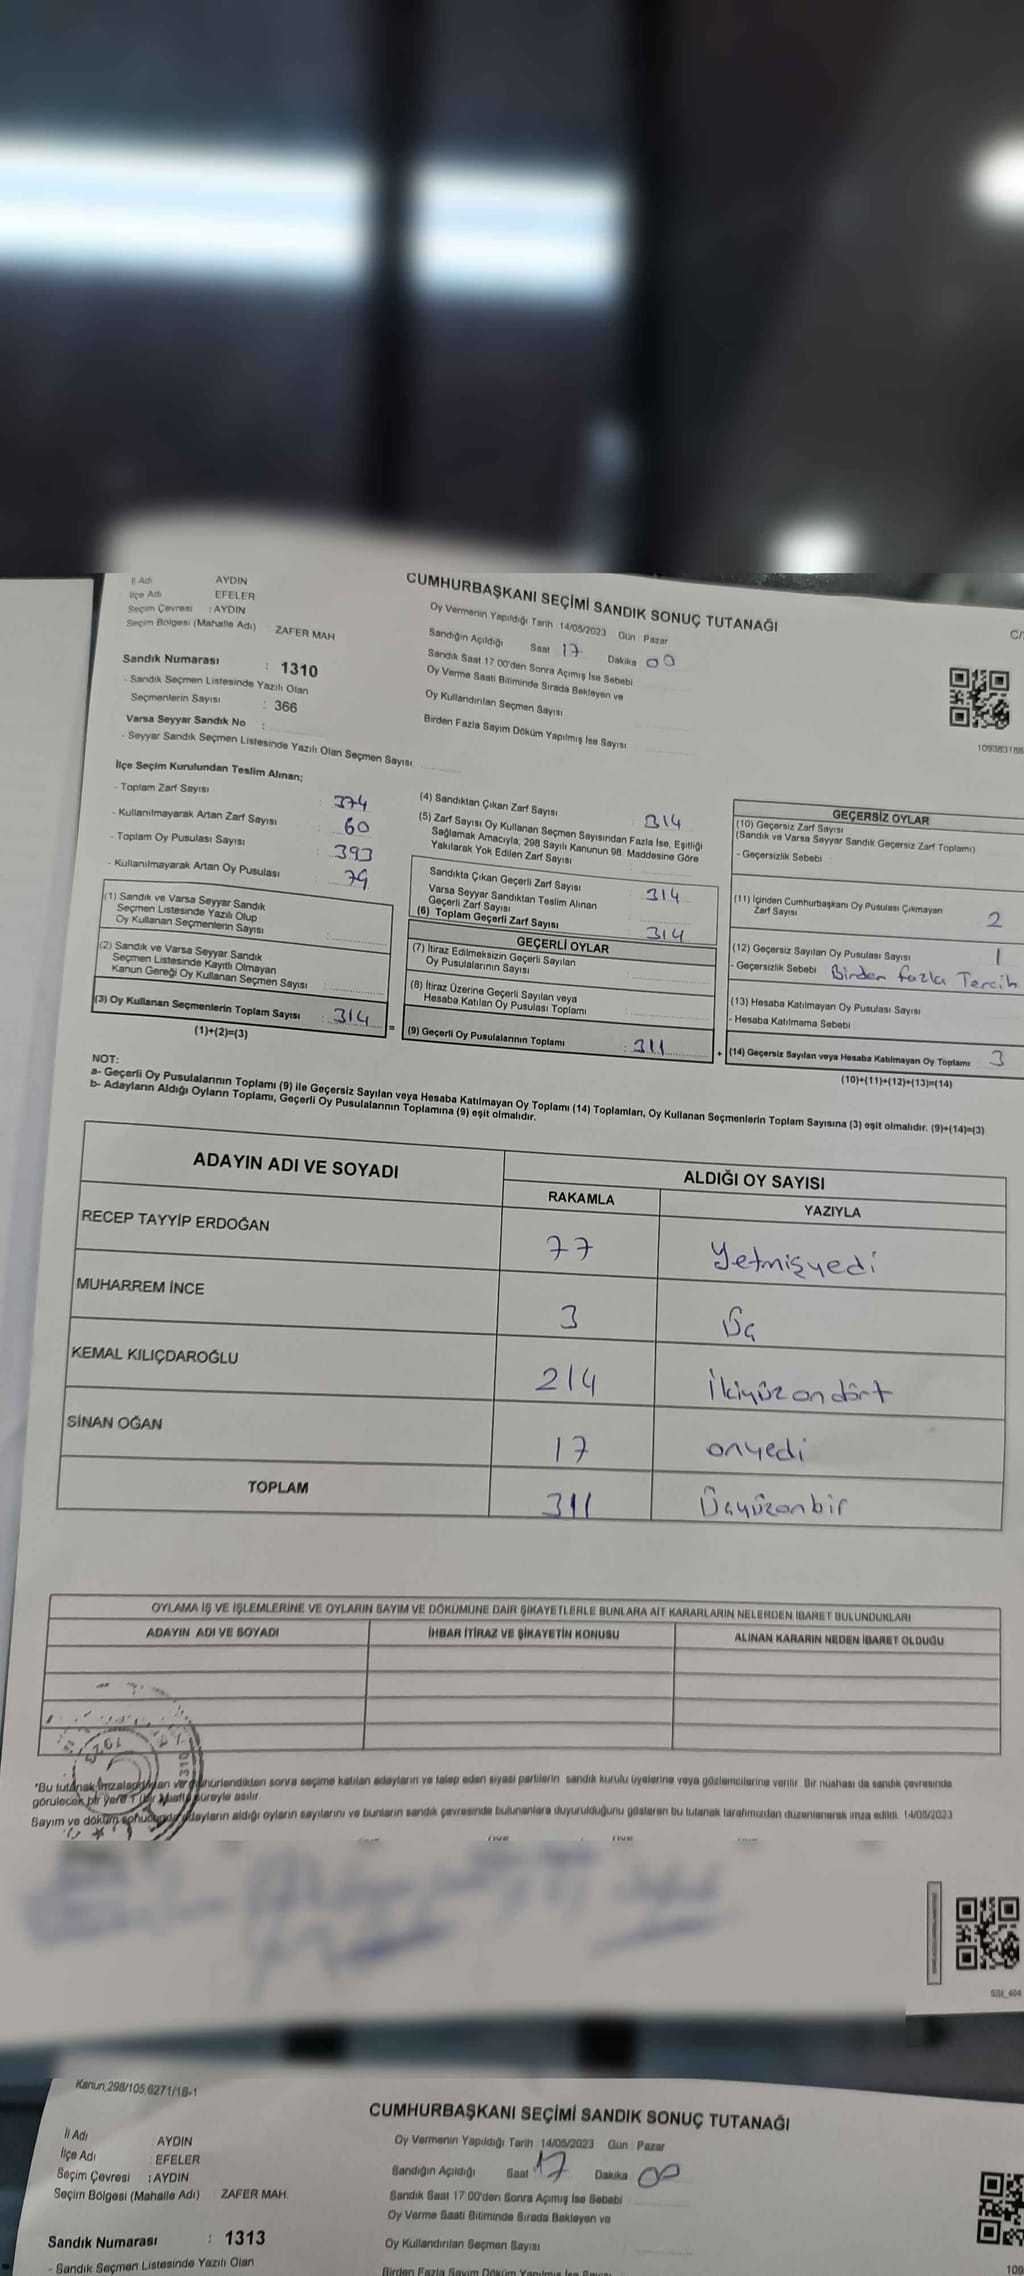 İl Adı AYDIN
İlçe Adı EFELER
Seçim Çevresi : AYDIN
Seçim Bölgesi (Mahalle Adı) ZAFER MAH
Sandık Numarası : 1310
- Sandık Seçmen Listesinde Yazılı Olan
Seçmenlerin Sayısı : 366
Varsa Seyyar Sandık No :
- Seyyar Sandık Seçmen Listesinde Yazılı Olan Seçmen Sayısı
CUMHURBAŞKANI SEÇİMİ SANDIK SONUÇ TUTANAĞI
Oy Vermenin Yapıldığı Tarih 14/05/2023 Gün : Pazar
Sandığın Açıldığı Saat 17 Dakika 00
Sandık Saat 17 00'den Sonra Açımış İse Sebebi
Oy Verme Saati Bitiminde Sırada Bekleyen ve
Oy Kullandırılan Seçmen Sayısı
Birden Fazla Sayım Döküm Yapılmış İse Sayısı
C/
109383188
İlçe Seçim Kurulundan Teslim Alınan;
- Toplam Zarf Sayısı : 374
- Kullanılmayarak Artan Zarf Sayısı : 60
- Toplam Oy Pusulası Sayısı : 393
- Kullanılmayarak Artan Oy Pusulası : 79
(1) Sandık ve Varsa Seyyar Sandık
Seçmen Listesinde Yazılı Olup
Oy Kullanan Seçmenlerin Sayısı
(2) Sandık ve Varsa Seyyar Sandık
Seçmen Listesinde Kayıtlı Olmayan
Kanun Gereği Oy Kullanan Seçmen Sayısı
(3) Oy Kullanan Seçmenlerin Toplam Sayısı : 314
(1)+(2)=(3)
(4) Sandıktan Çıkan Zarf Sayısı 314
(5) Zarf Sayısı Oy Kullanan Seçmen Sayısından Fazla İse, Eşitliği
Sağlamak Amacıyla, 298 Sayılı Kanunun 98. Maddesine Göre
Yakılarak Yok Edilen Zarf Sayısı
Sandıkta Çıkan Geçerli Zarf Sayısı : 314
Varsa Seyyar Sandıktan Teslim Alınan
Geçerli Zarf Sayısı
(6) Toplam Geçerli Zarf Sayısı 314
GEÇERLİ OYLAR
(7) İtiraz Edilmeksizin Geçerli Sayılan
Oy Pusulalarının Sayısı
(8) İtiraz Üzerine Geçerli Sayılan veya
Hesaba Katılan Oy Pusulası Toplamı
= (9) Geçerli Oy Pusulalarının Toplamı : 311
GEÇERSİZ OYLAR
(10) Geçersiz Zarf Sayısı
(Sandık ve Varsa Seyyar Sandık Geçersiz Zarf Toplamı)
- Geçersizlik Sebebi
(11) İçinden Cumhurbaşkanı Oy Pusulası Çıkmayan
Zarf Sayısı 2
(12) Geçersiz Sayılan Oy Pusulası Sayısı 1
- Geçersizlik Sebebi Birden fazla Tercih
(13) Hesaba Katılmayan Oy Pusulası Sayısı
- Hesaba Katılmama Sebebi
+ (14) Geçersiz Sayılan veya Hesaba Katılmayan Oy Toplamı 3
(10)+(11)+(12)+(13)=(14)
NOT:
a- Geçerli Oy Pusulalarının Toplamı (9) ile Geçersiz Sayılan veya Hesaba Katılmayan Oy Toplamı (14) Toplamları, Oy Kullanan Seçmenlerin Toplam Sayısına (3) eşit olmalıdır. (9)+(14)=(3)
b- Adayların Aldığı Oyların Toplamı, Geçerli Oy Pusulalarının Toplamına (9) eşit olmalıdır.
ADAYIN ADI VE SOYADI ALDIĞI OY SAYISI
RAKAMLA YAZIYLA
RECEP TAYYİP ERDOĞAN 77 Yetmişyedi
MUHARREM İNCE 3 Üç
KEMAL KILIÇDAROĞLU 214 İkiyüzondört
SİNAN OĞAN 17 onyedi
TOPLAM 311 Üçyüzonbir
OYLAMA İŞ VE İŞLEMLERİNE VE OYLARIN SAYIM VE DÖKÜMÜNE DAİR ŞİKAYETLERLE BUNLARA AİT KARARLARIN NELERDEN İBARET BULUNDUKLARI
ADAYIN ADI VE SOYADI İHBAR İTİRAZ VE ŞİKAYETİN KONUSU ALINAN KARARIN NEDEN İBARET OLDUĞU
*Bu tutanak imzalandıktan ve mühürlendikten sonra seçime katılan adayların ve talep eden siyasi partilerin sandık kurulu üyelerine veya gözlemcilerine verilir. Bir nüshası da sandık çevresinde
görülecek bir yere 1 (bir) hafta süreyle asılır.
Sayım ve döküm sonucunda adayların aldığı oyların sayılarını ve bunların sandık çevresinde bulunanlara duyurulduğunu gösteren bu tutanak tarafımızdan düzenlenerek imza edildi. 14/05/2023
Kanun,298/105;6271/18-1
CUMHURBAŞKANI SEÇİMİ SANDIK SONUÇ TUTANAĞI
İl Adı AYDIN
İlçe Adı : EFELER
Seçim Çevresi : AYDIN
Seçim Bölgesi (Mahalle Adı) : ZAFER MAH.
Sandık Numarası : 1313
- Sandık Seçmen Listesinde Yazılı Olan
Oy Vermenin Yapıldığı Tarih : 14/05/2023 Gün : Pazar
Sandığın Açıldığı Saat 17 Dakika 00
Sandık Saat 17:00'den Sonra Açımış İse Sebebi
Oy Verme Saati Bitiminde Sırada Bekleyen ve
Oy Kullandırılan Seçmen Sayısı
Birden Fazla Sayım Döküm Yapılmış İse Sayısı
109